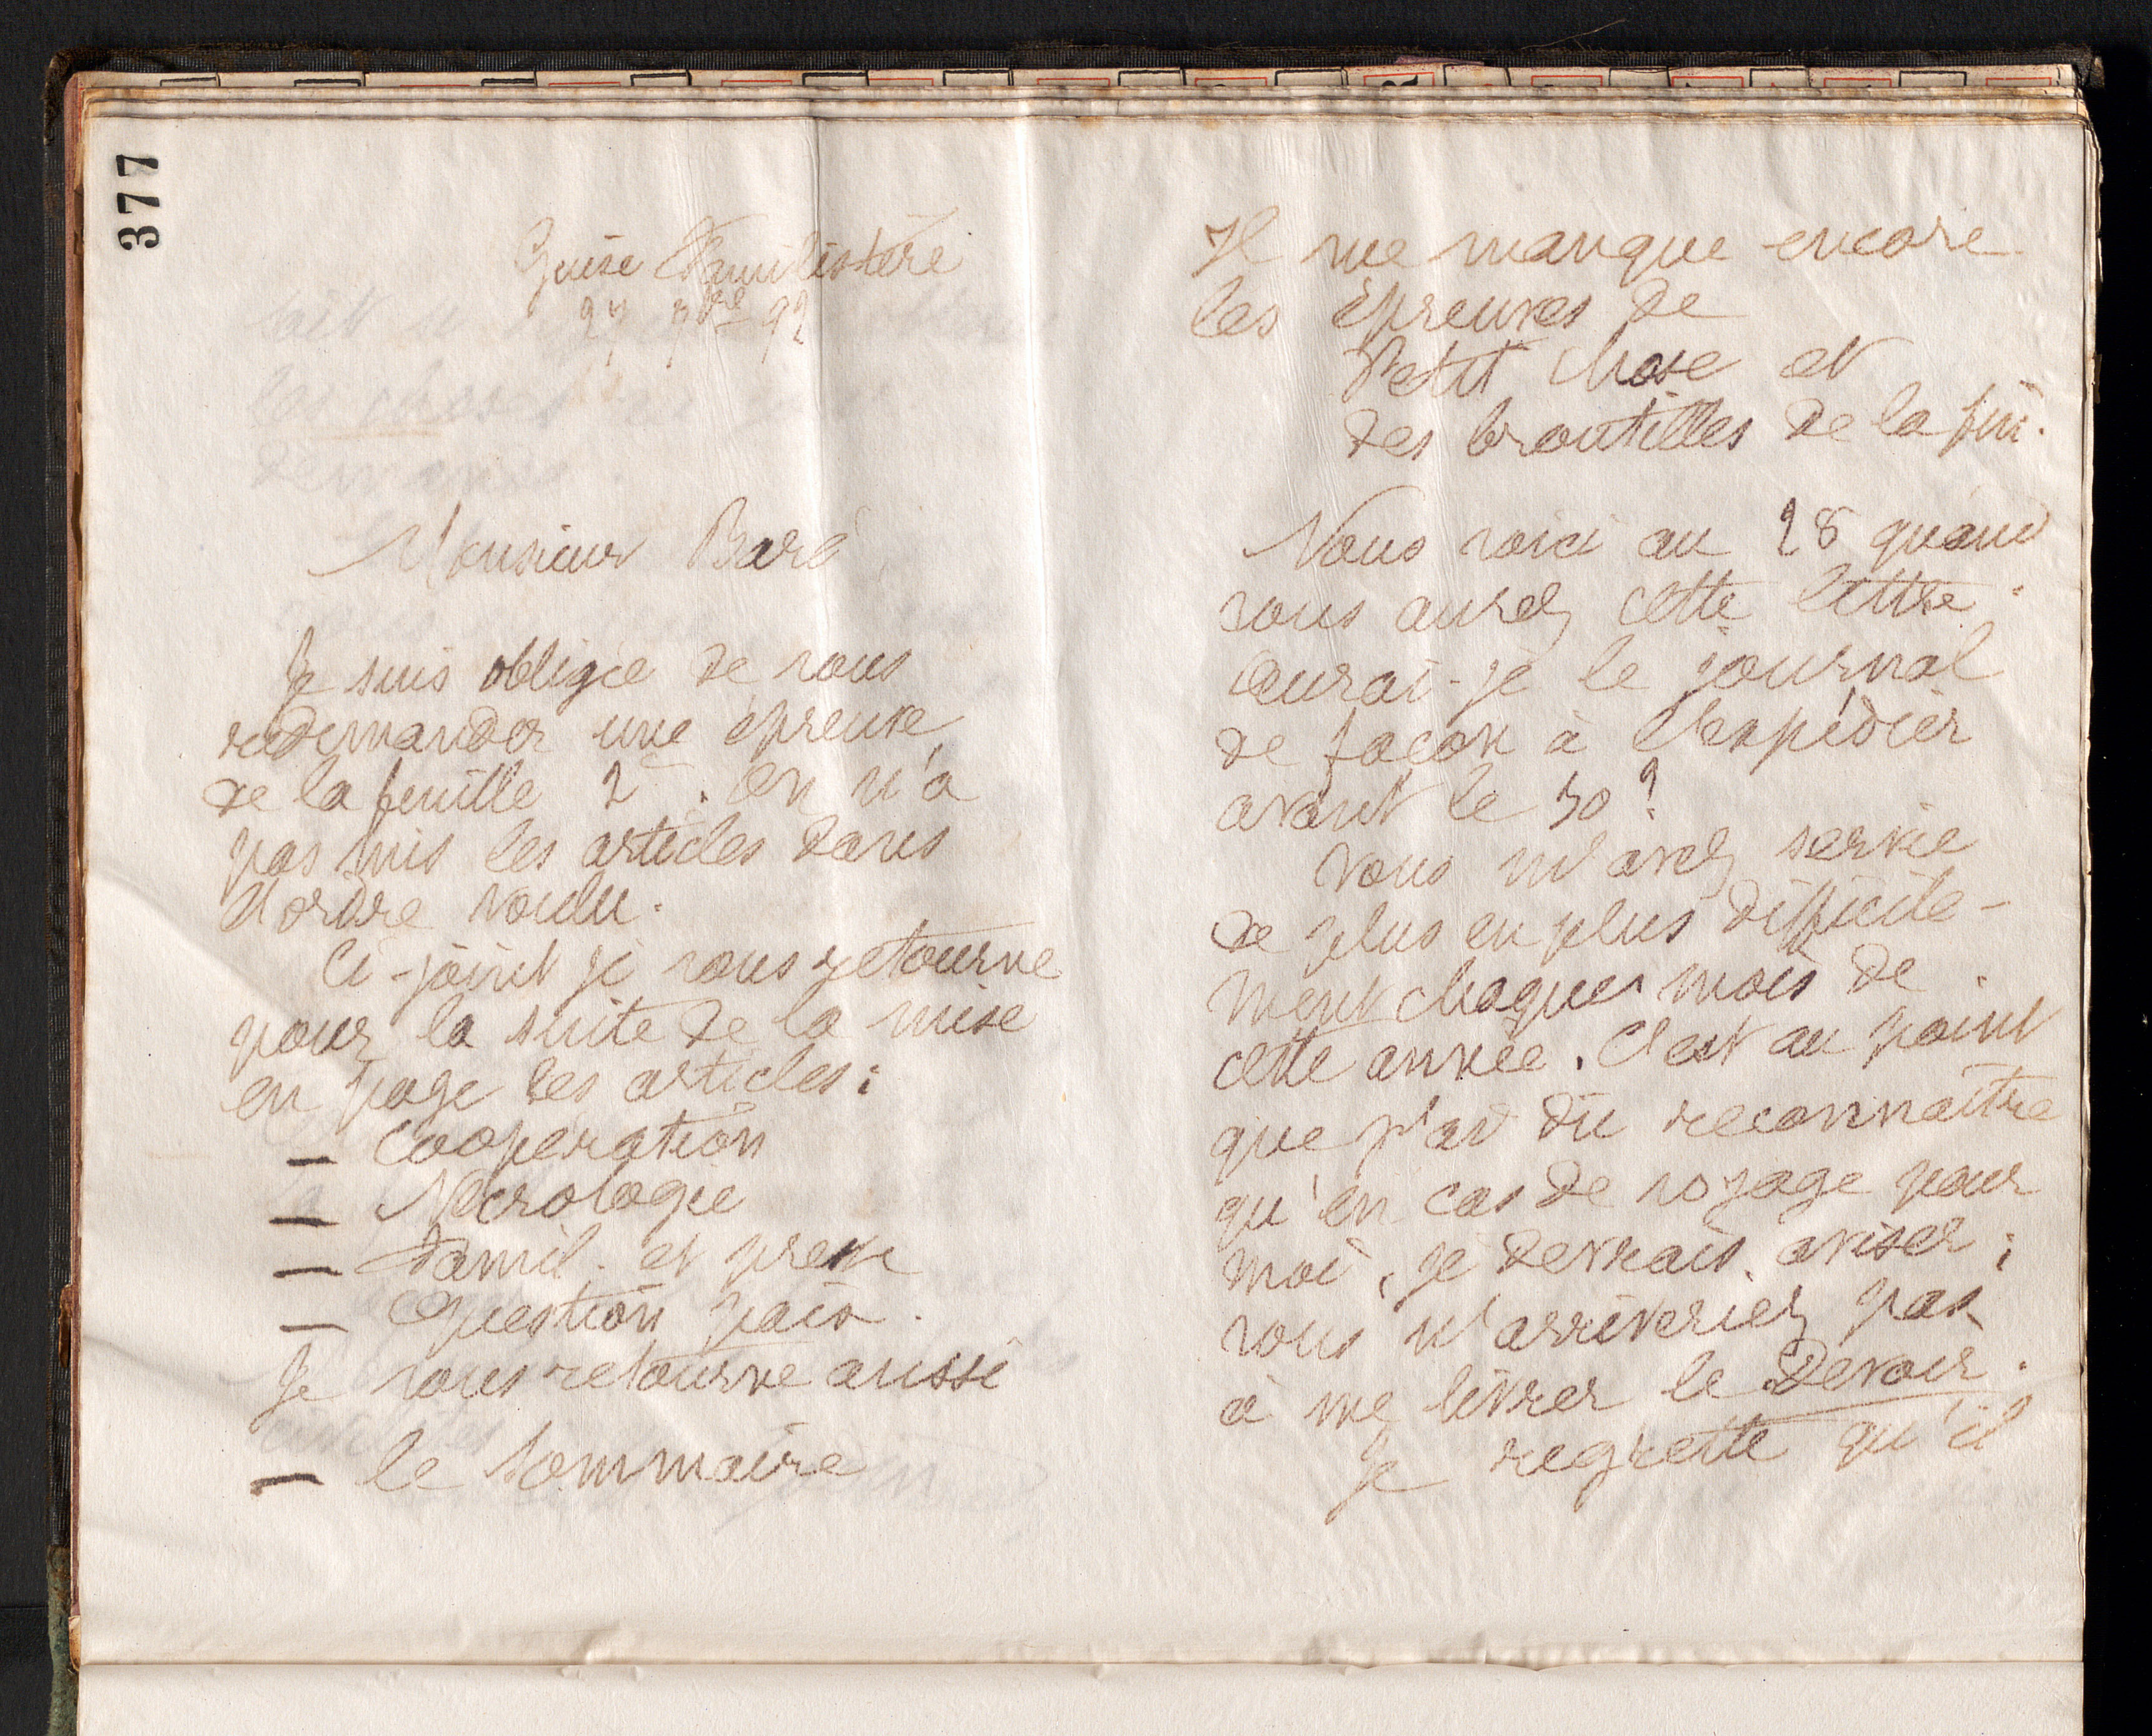 377
Guise Familistère
27 7bre 92
Monsieur Baré
Je suis obligée de vous
redemander une épreuve
de la feuille 2e. On n'a
pas mis les articles dans
l'ordre voulu.
Ci-joint je vous retourne
pour la suite de la mise
en page les articles :
— Coopération
— Nécrologie
— Famil. et
— Question paix.
Je vous retourne aussi
— le Sommaire
Il me manque encore
les épreuves de
Petit Chose et
des broutilles de la fin.
Nous voici au 28 quand
vous aurez cette lettre.
Aurai-je le journal
de façon à l'expédier
avant le 30 ?
Vous m'avez servie
de plus en plus difficile-
ment chaque mois de
cette année. C'est au point
que j'ai dû reconnaître
qu'en cas de voyage pour
moi, je devrais aviser ;
vous n'arriveriez pas
à me livrer le Devoir.
Je regrette qu'il